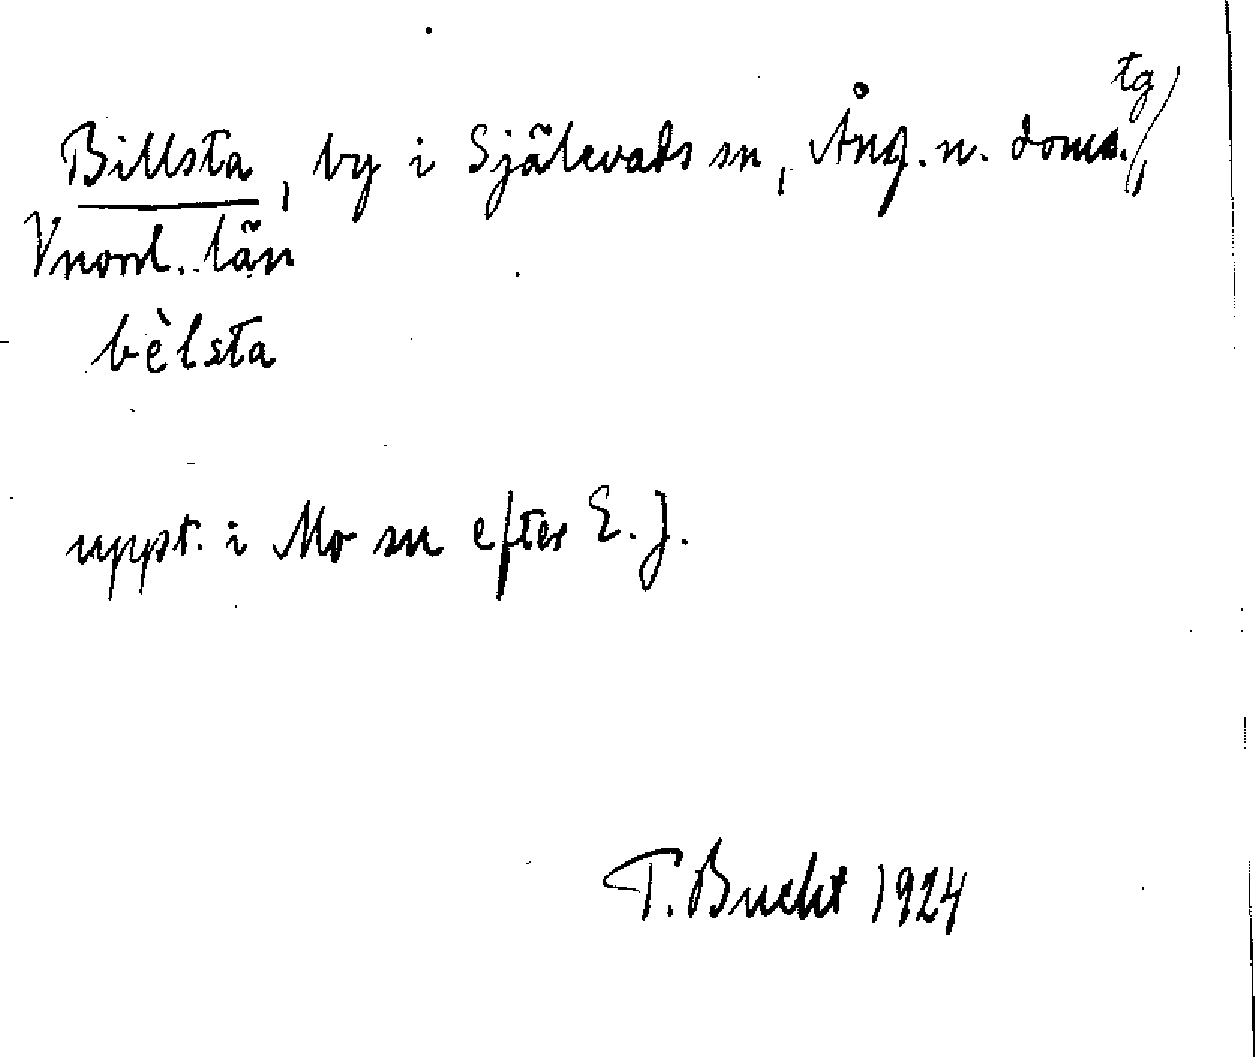 Billsta, by i Själevads sn, Ång. n. doms.tg,
Vnorrl. län
bèlsta
uppt. i Mo sn efter E. J.
T. Bucht 1924